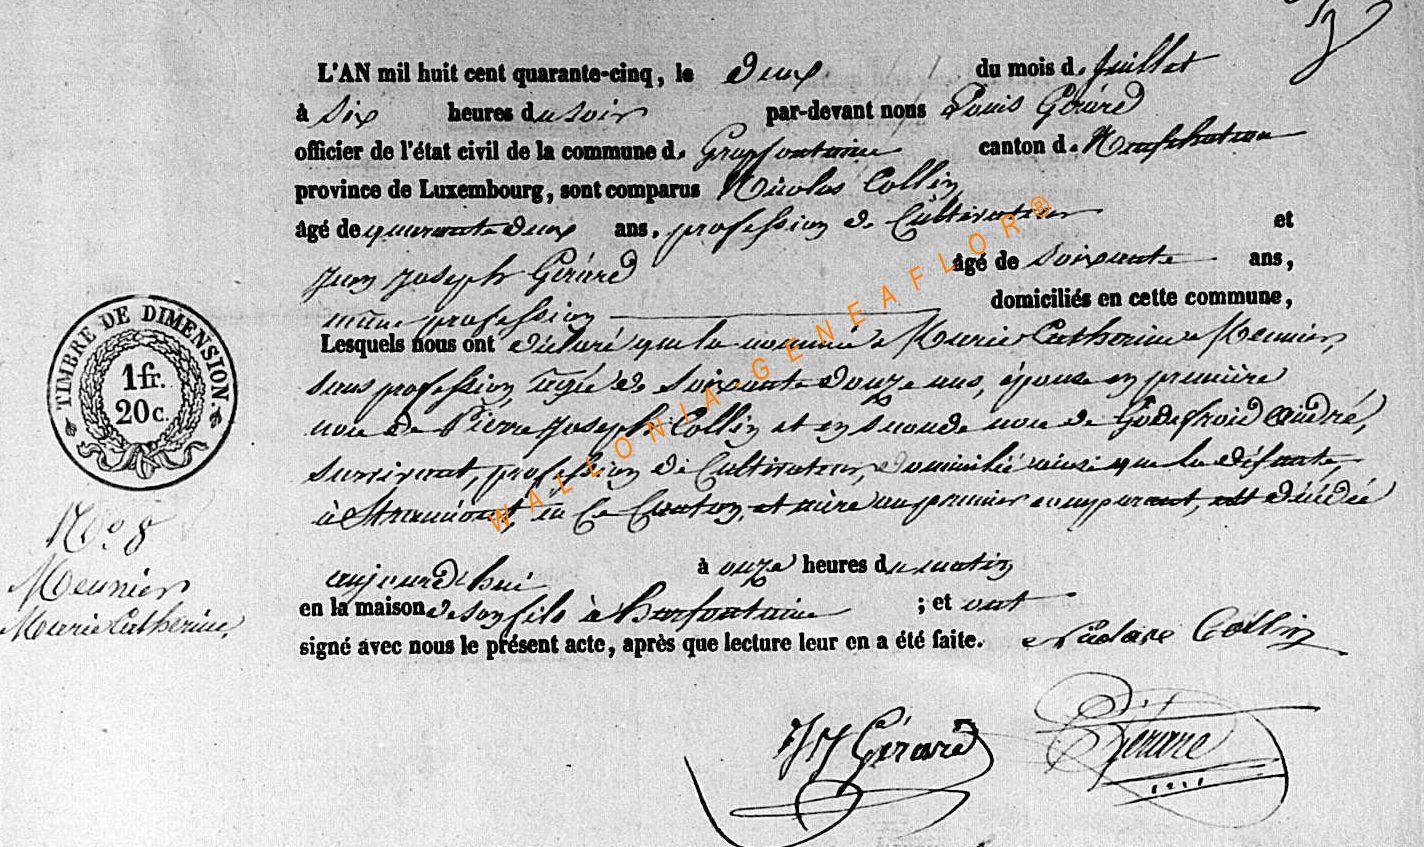 L'AN mil huit cent quarante-cinq, le deux du mois de juillet
à six heures du soir par-devant nous Louis Gérard
officier de l'état civil de la commune de Grapfontaine canton de Neufchateau
province de Luxembourg, sont comparus Nicolas Collin
âgé de quarante deux ans, profession de Cultivateur et
Jean Joseph Gérard âgé de soixante ans,
même profession domiciliés en cette commune,
Lesquels nous ont déclaré que la nommée Marie Catherine Meunier,
sans profession, agée de soixante douze ans, épouse en première
noce de Pierre Joseph Collin et en seconde noce de Godefroid André,
survivant, profession de Cultivateur, domicilié ainsi que la défunte,
à Straimont, en ce Canton, et mère au premier comparant, est décédée
aujourd'hui à onze heures du matin
en la maison de son fils à Harfontaine ; et ont
signé avec nous le présent acte, après que lecture leur en a été faite. Collin
JJ Gérard
Gérard
TIMBRE DE DIMENSION.
1 fr.
20 c.
N° 8
Meunier
Marie Catherine,
WALLONIA-GENEAFLOR®